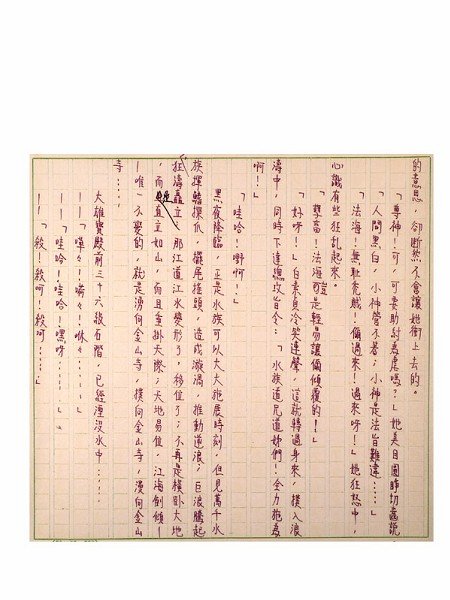 的意思，卻斷然不會讓她衝上去的。
「尊神！可，可要助討為虐嗎？」她美目圓睜切齒說
「人間黑白，小神管不着；小神是法旨難違……」
「法海！無恥禿賊！偏過來！過來呀！」她狂怒中，
心識有些狂亂起來。
「孽畜！法海豈是輕易讓偏傾覆的！」
「好呀！」白素貞冷笑連聲，這就轉過身來，撲入浪
濤中，同時下達總攻旨令：「水族道兄道姊們！全力施為
啊！」
「哇哈！嘢呵！」
黑夜降臨，正是水族可以大大施展時刻，但見萬千水
族揮轉操爪，擺尾搖頭，造成漩渦，推動道浪；巨浪騰起
狂濤矗立，那江道江水變形了，移位了；不再是橫臥大地
，而直立如山，而且垂掛天際；天地易位，江海倒傾！
！唯一不變的，就是湧向金山寺，撲向金山寺，漫向金山
寺……
大雄寶殿前三十六級石階，已經湮沒水中……
——「嘩々！嘶！咻々……」
——「哇哈！哇哈！嘿呀……」
——「殺！殺呵！殺呵……」